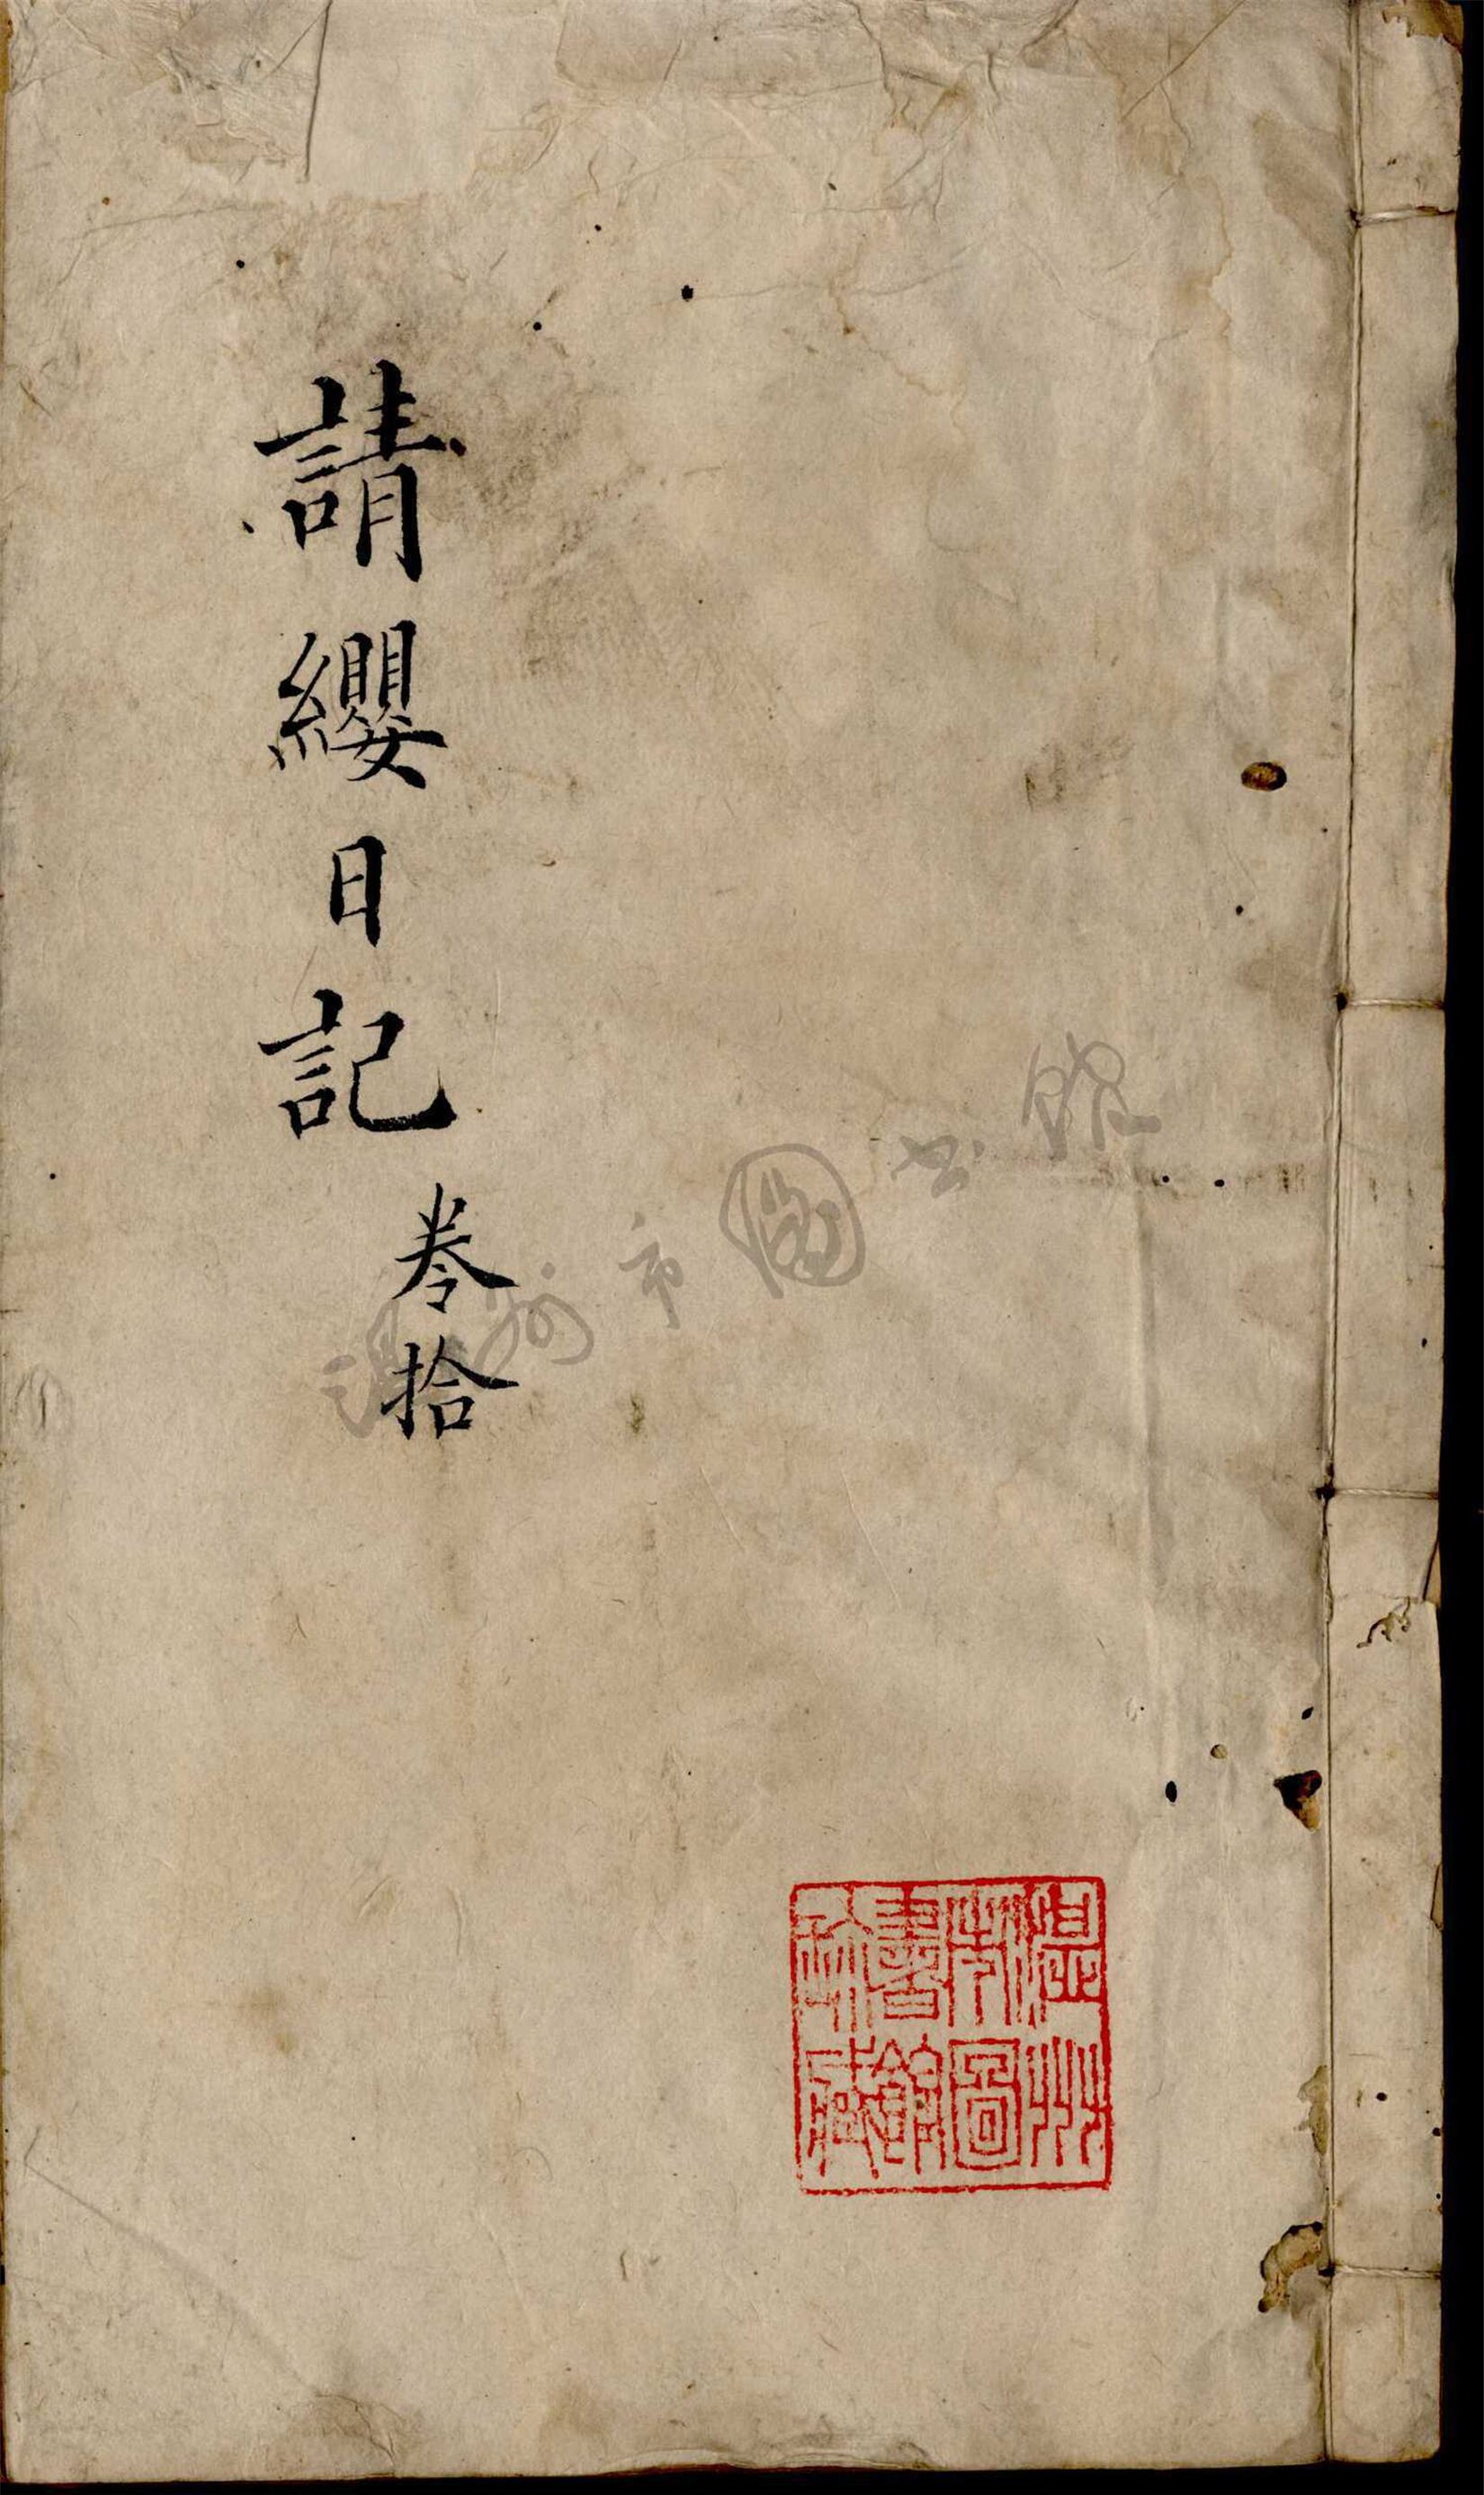 請纓日記
卷拾
温州市圖书館
温州
市圖
書館
珍藏